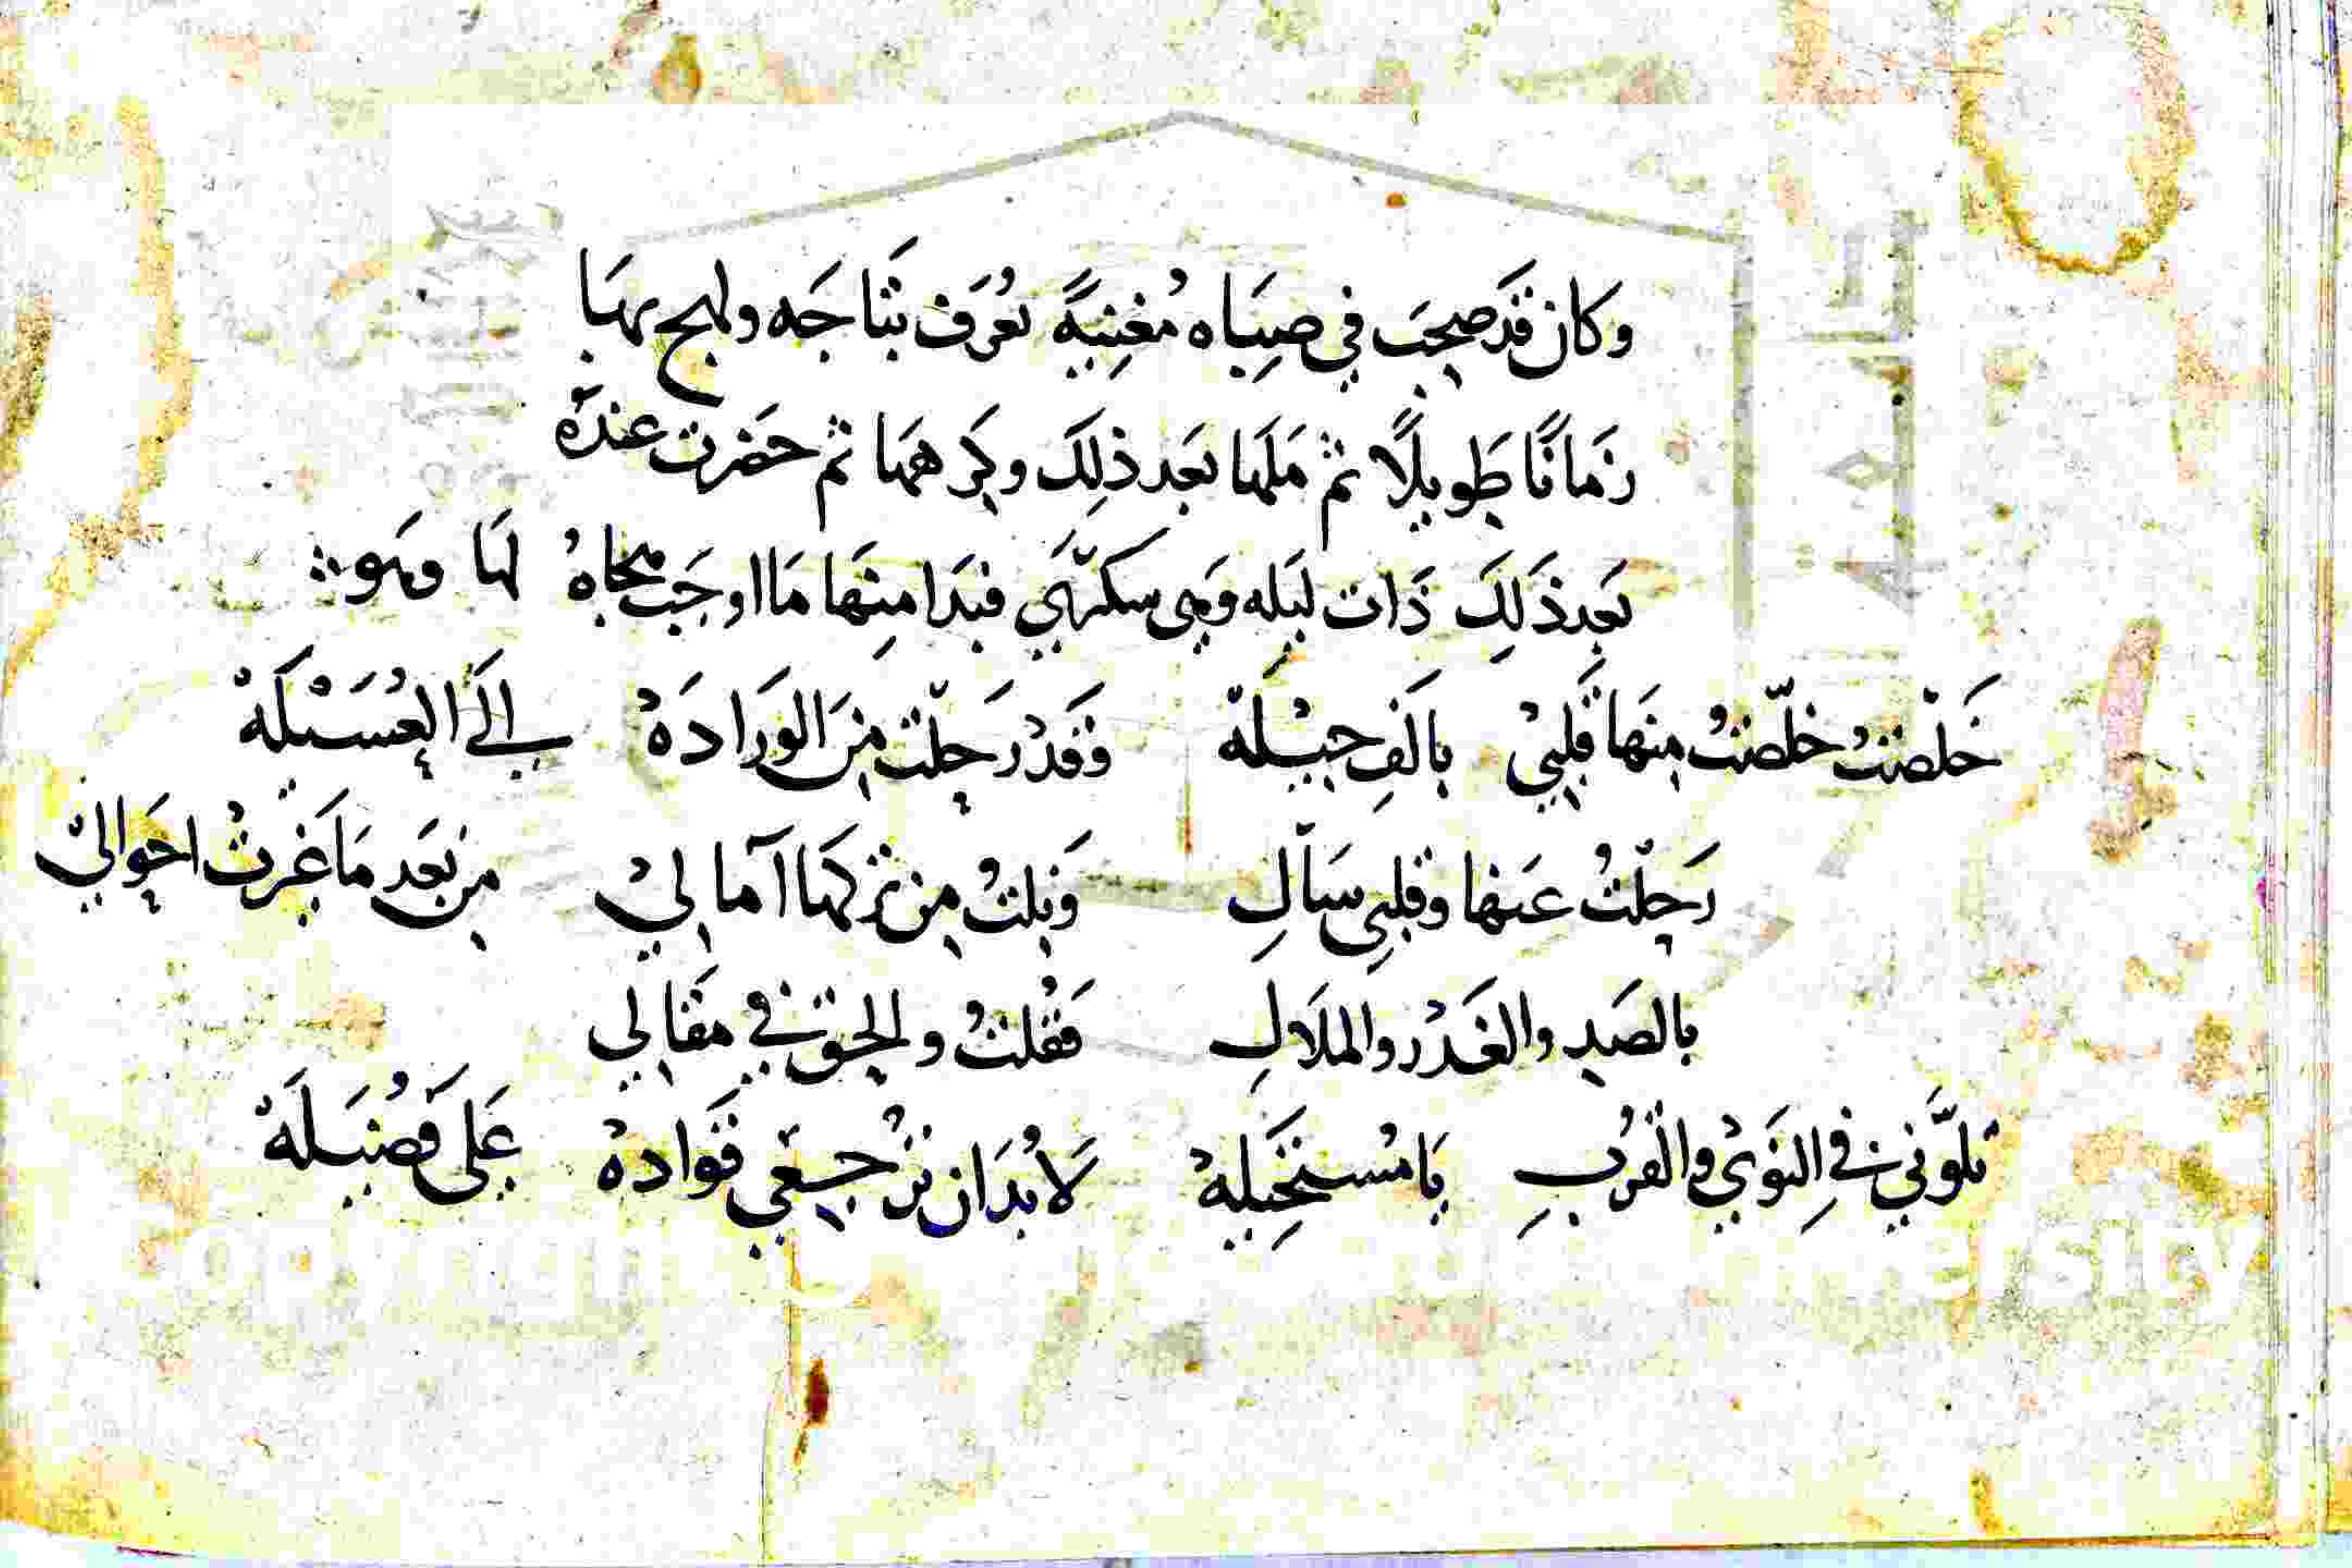 وكان قد صحب في صباه مُغنيةً تعُرَف بتاجَه ولهج بهَا
زمَانًا طَويلًا ثم مَلهَا بعَد ذلِكَ وكرههَا ثم حضرت عندَهُ
بعَد ذَلِكَ ذَات ليَله وَهِي سكرَى فبدَا منِهَا مَا اوجَب هجاهُ لهَا وهَو
خَلصتُ خلّصتُ مِنهَا قَلبيْ بالَفِ حيْلَهْ وَقَدْ رَحلّت مِنَ الوَرادَهْ إلَى العُسَيْلَهْ
رَحلّتُ عَنها وقلبي سَالِ وَنلتُ من تركهَا آمالِيْ من بعَد مَا غَيرتْ احوَاليْ
بالصَدِ والغَدْر والملَالِ فَقُلتُ والحق في مقَالي
تلوَّني في النوَىْ والقُربِ يَا مُستحَيلهْ لَا بُدَان ترْجعي قَوادهْ عَلى